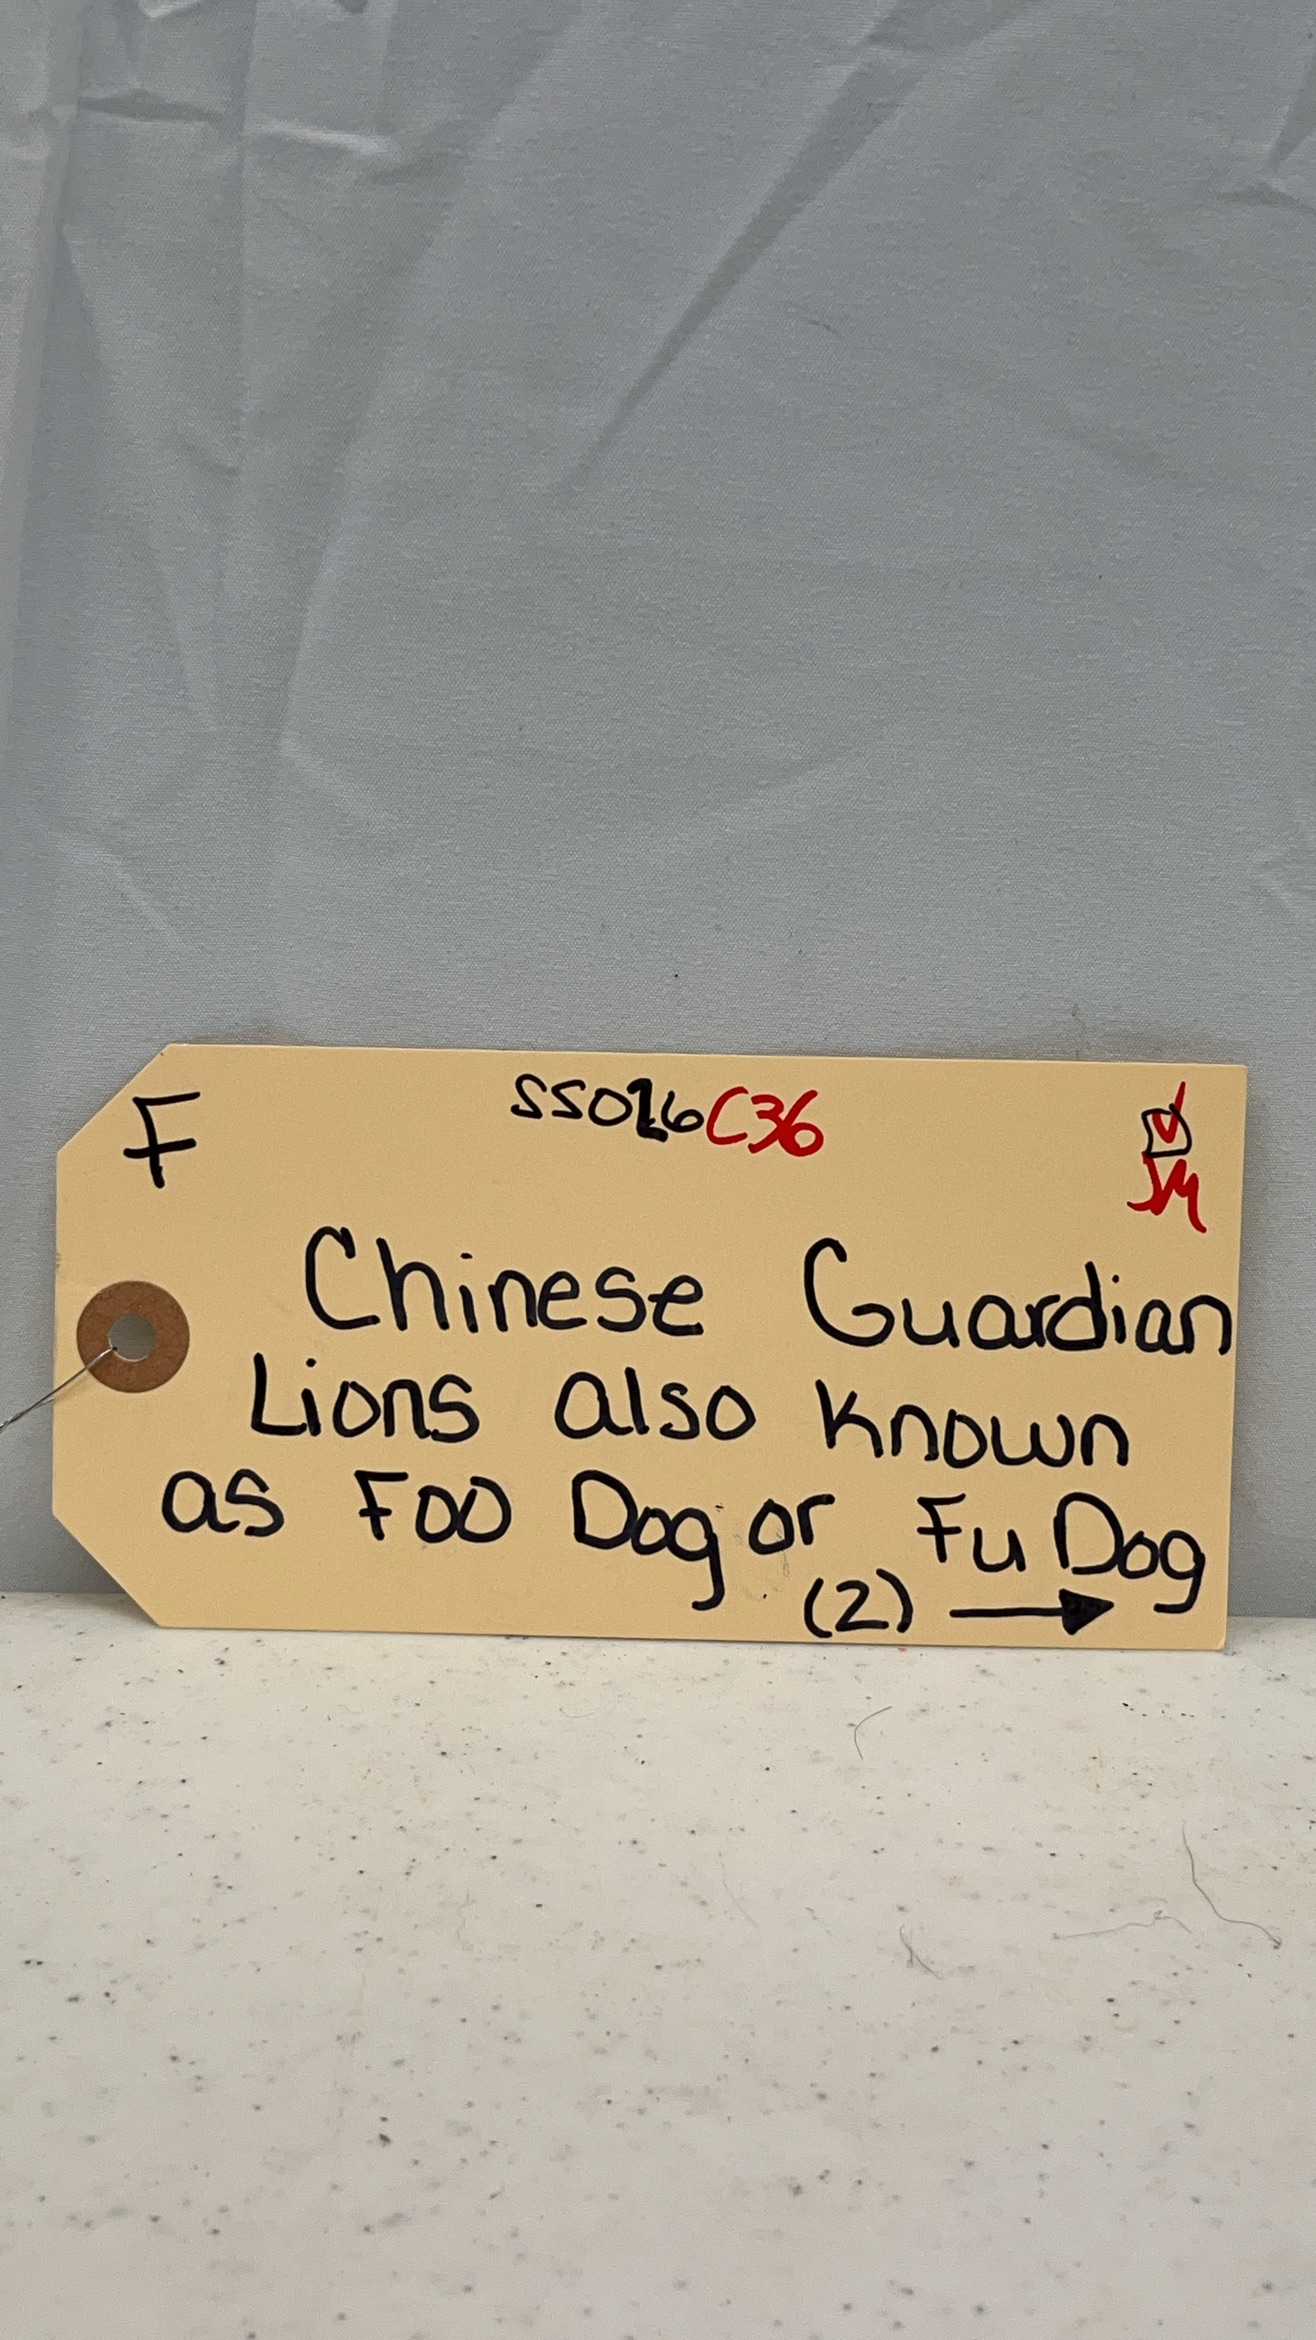 F SS016C36
JM
Chinese Guardian
Lions also known
as Foo Dog or Fu Dog
(2) →